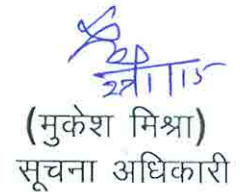 (मुकेश मिश्रा)
सूचना अधिकारी